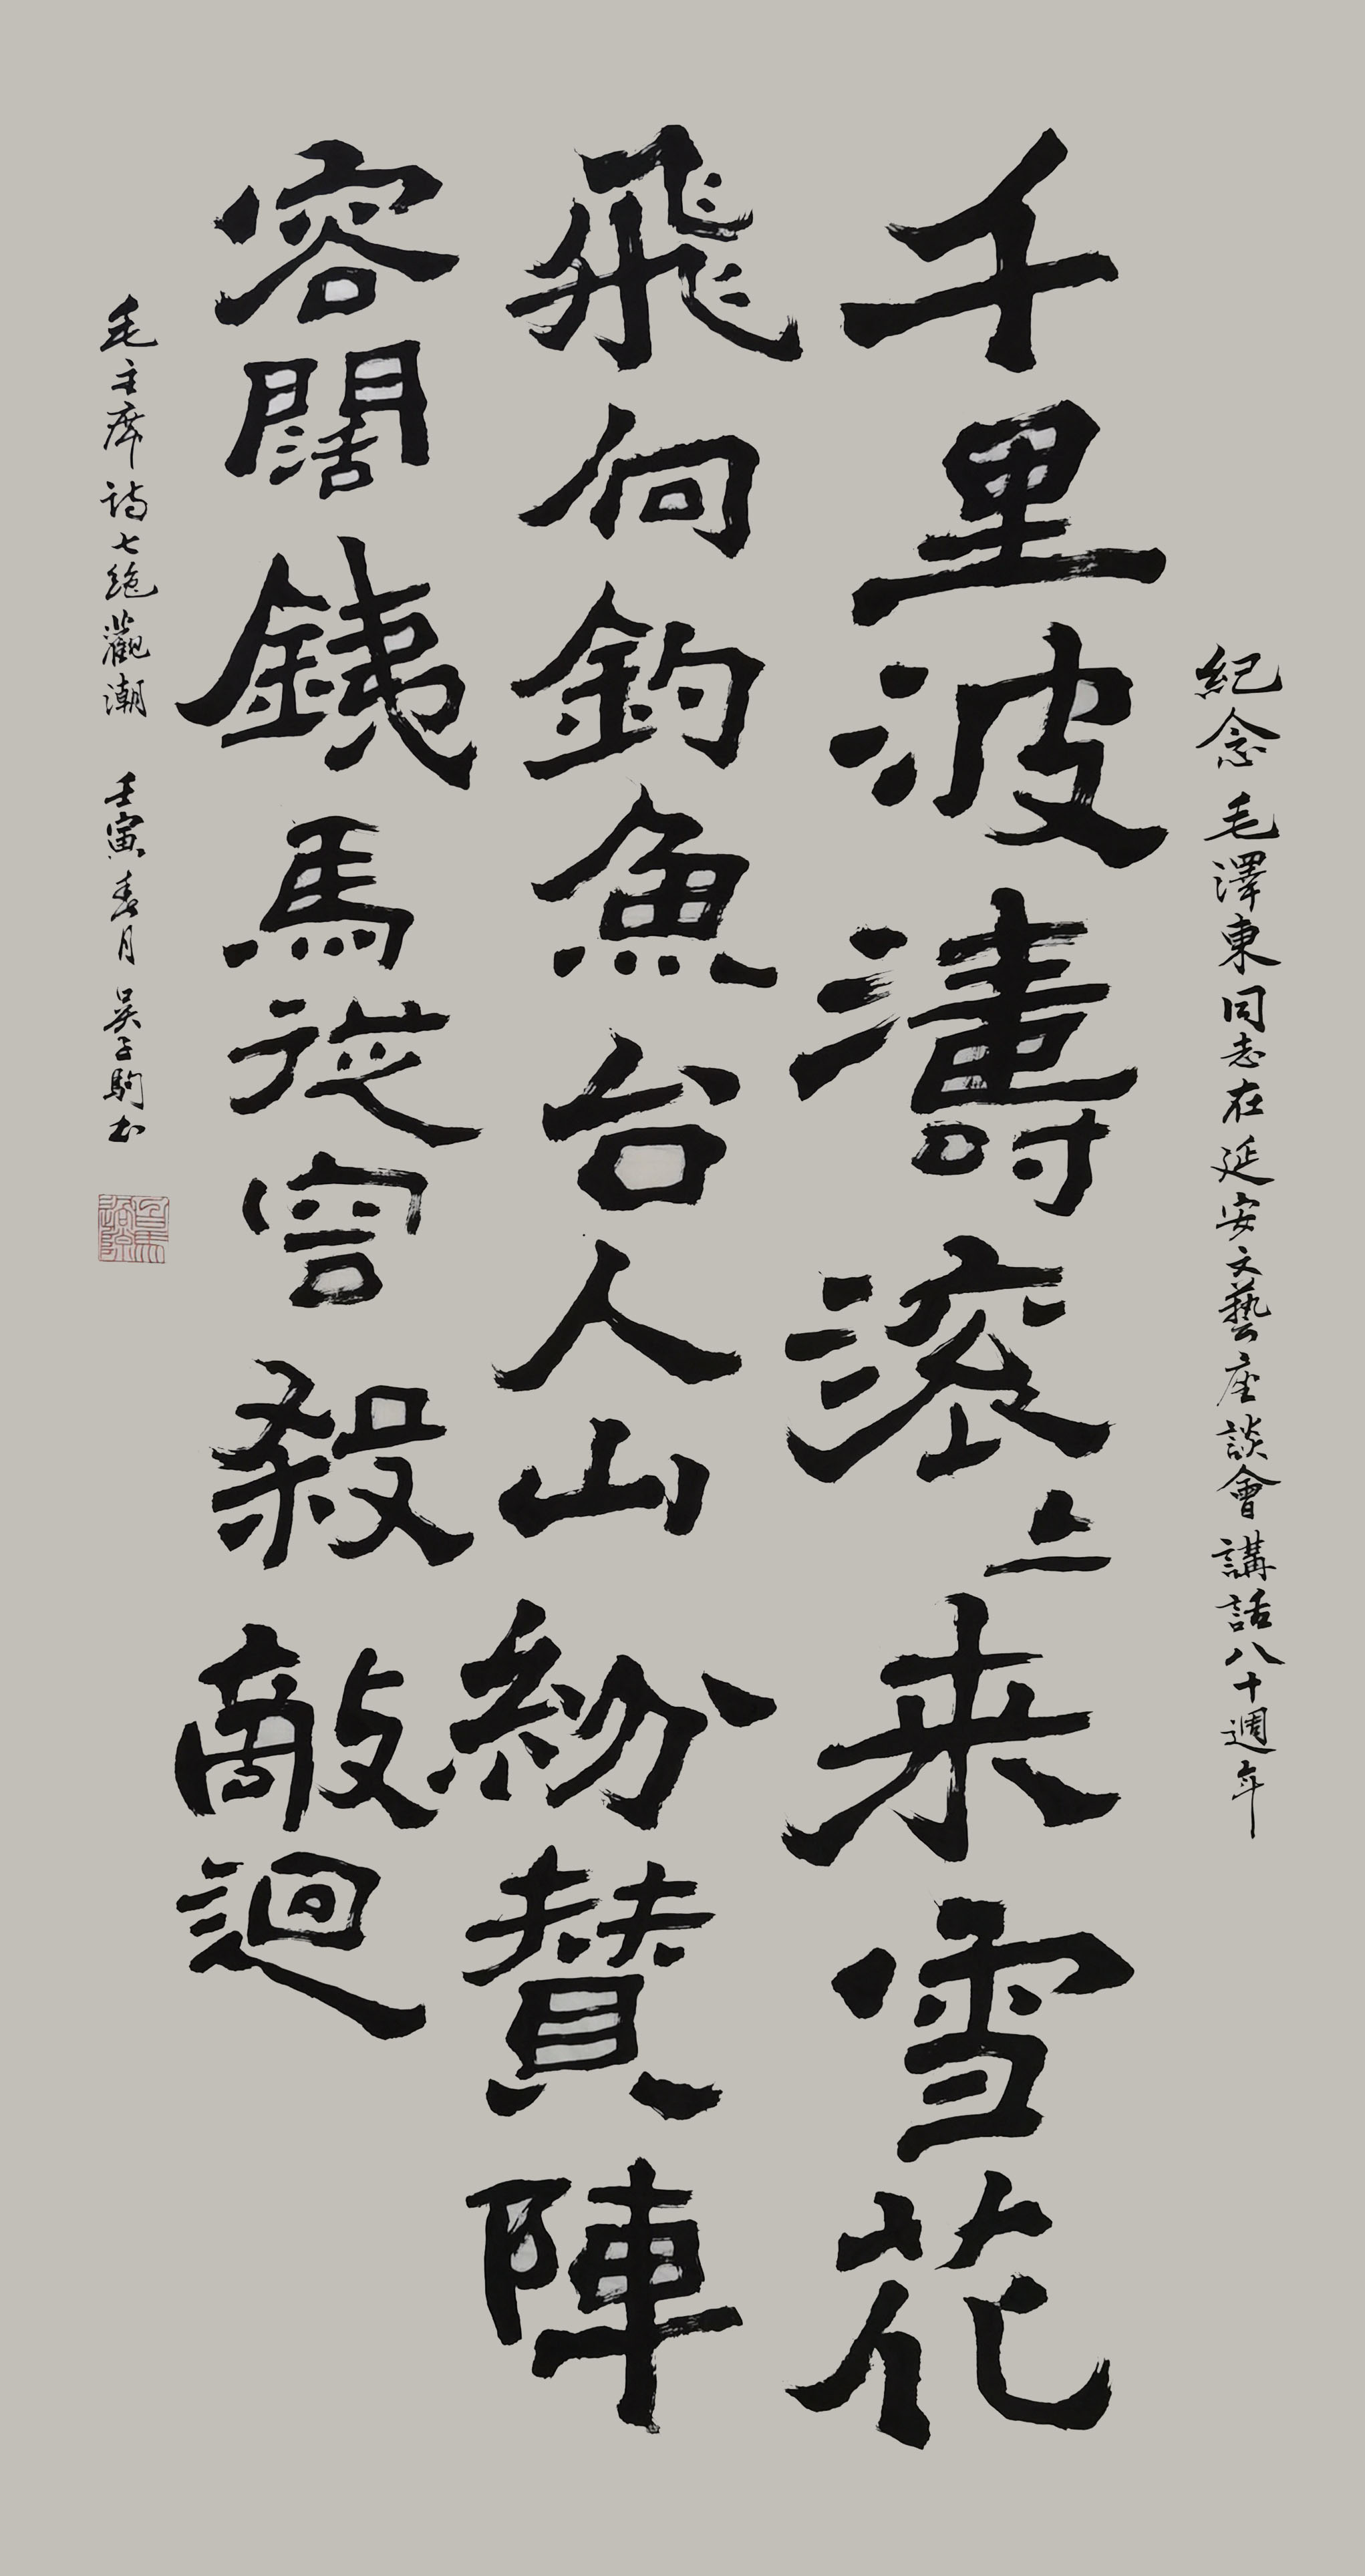 紀念毛澤東同志在延安文藝座談會講話八十週年
千里波濤滚〻来雪花
飛向釣魚台人山紛賛陣
容闊銕馬從容殺敵迴
毛主席詩七絶觀潮 壬寅春月 吴子駒书